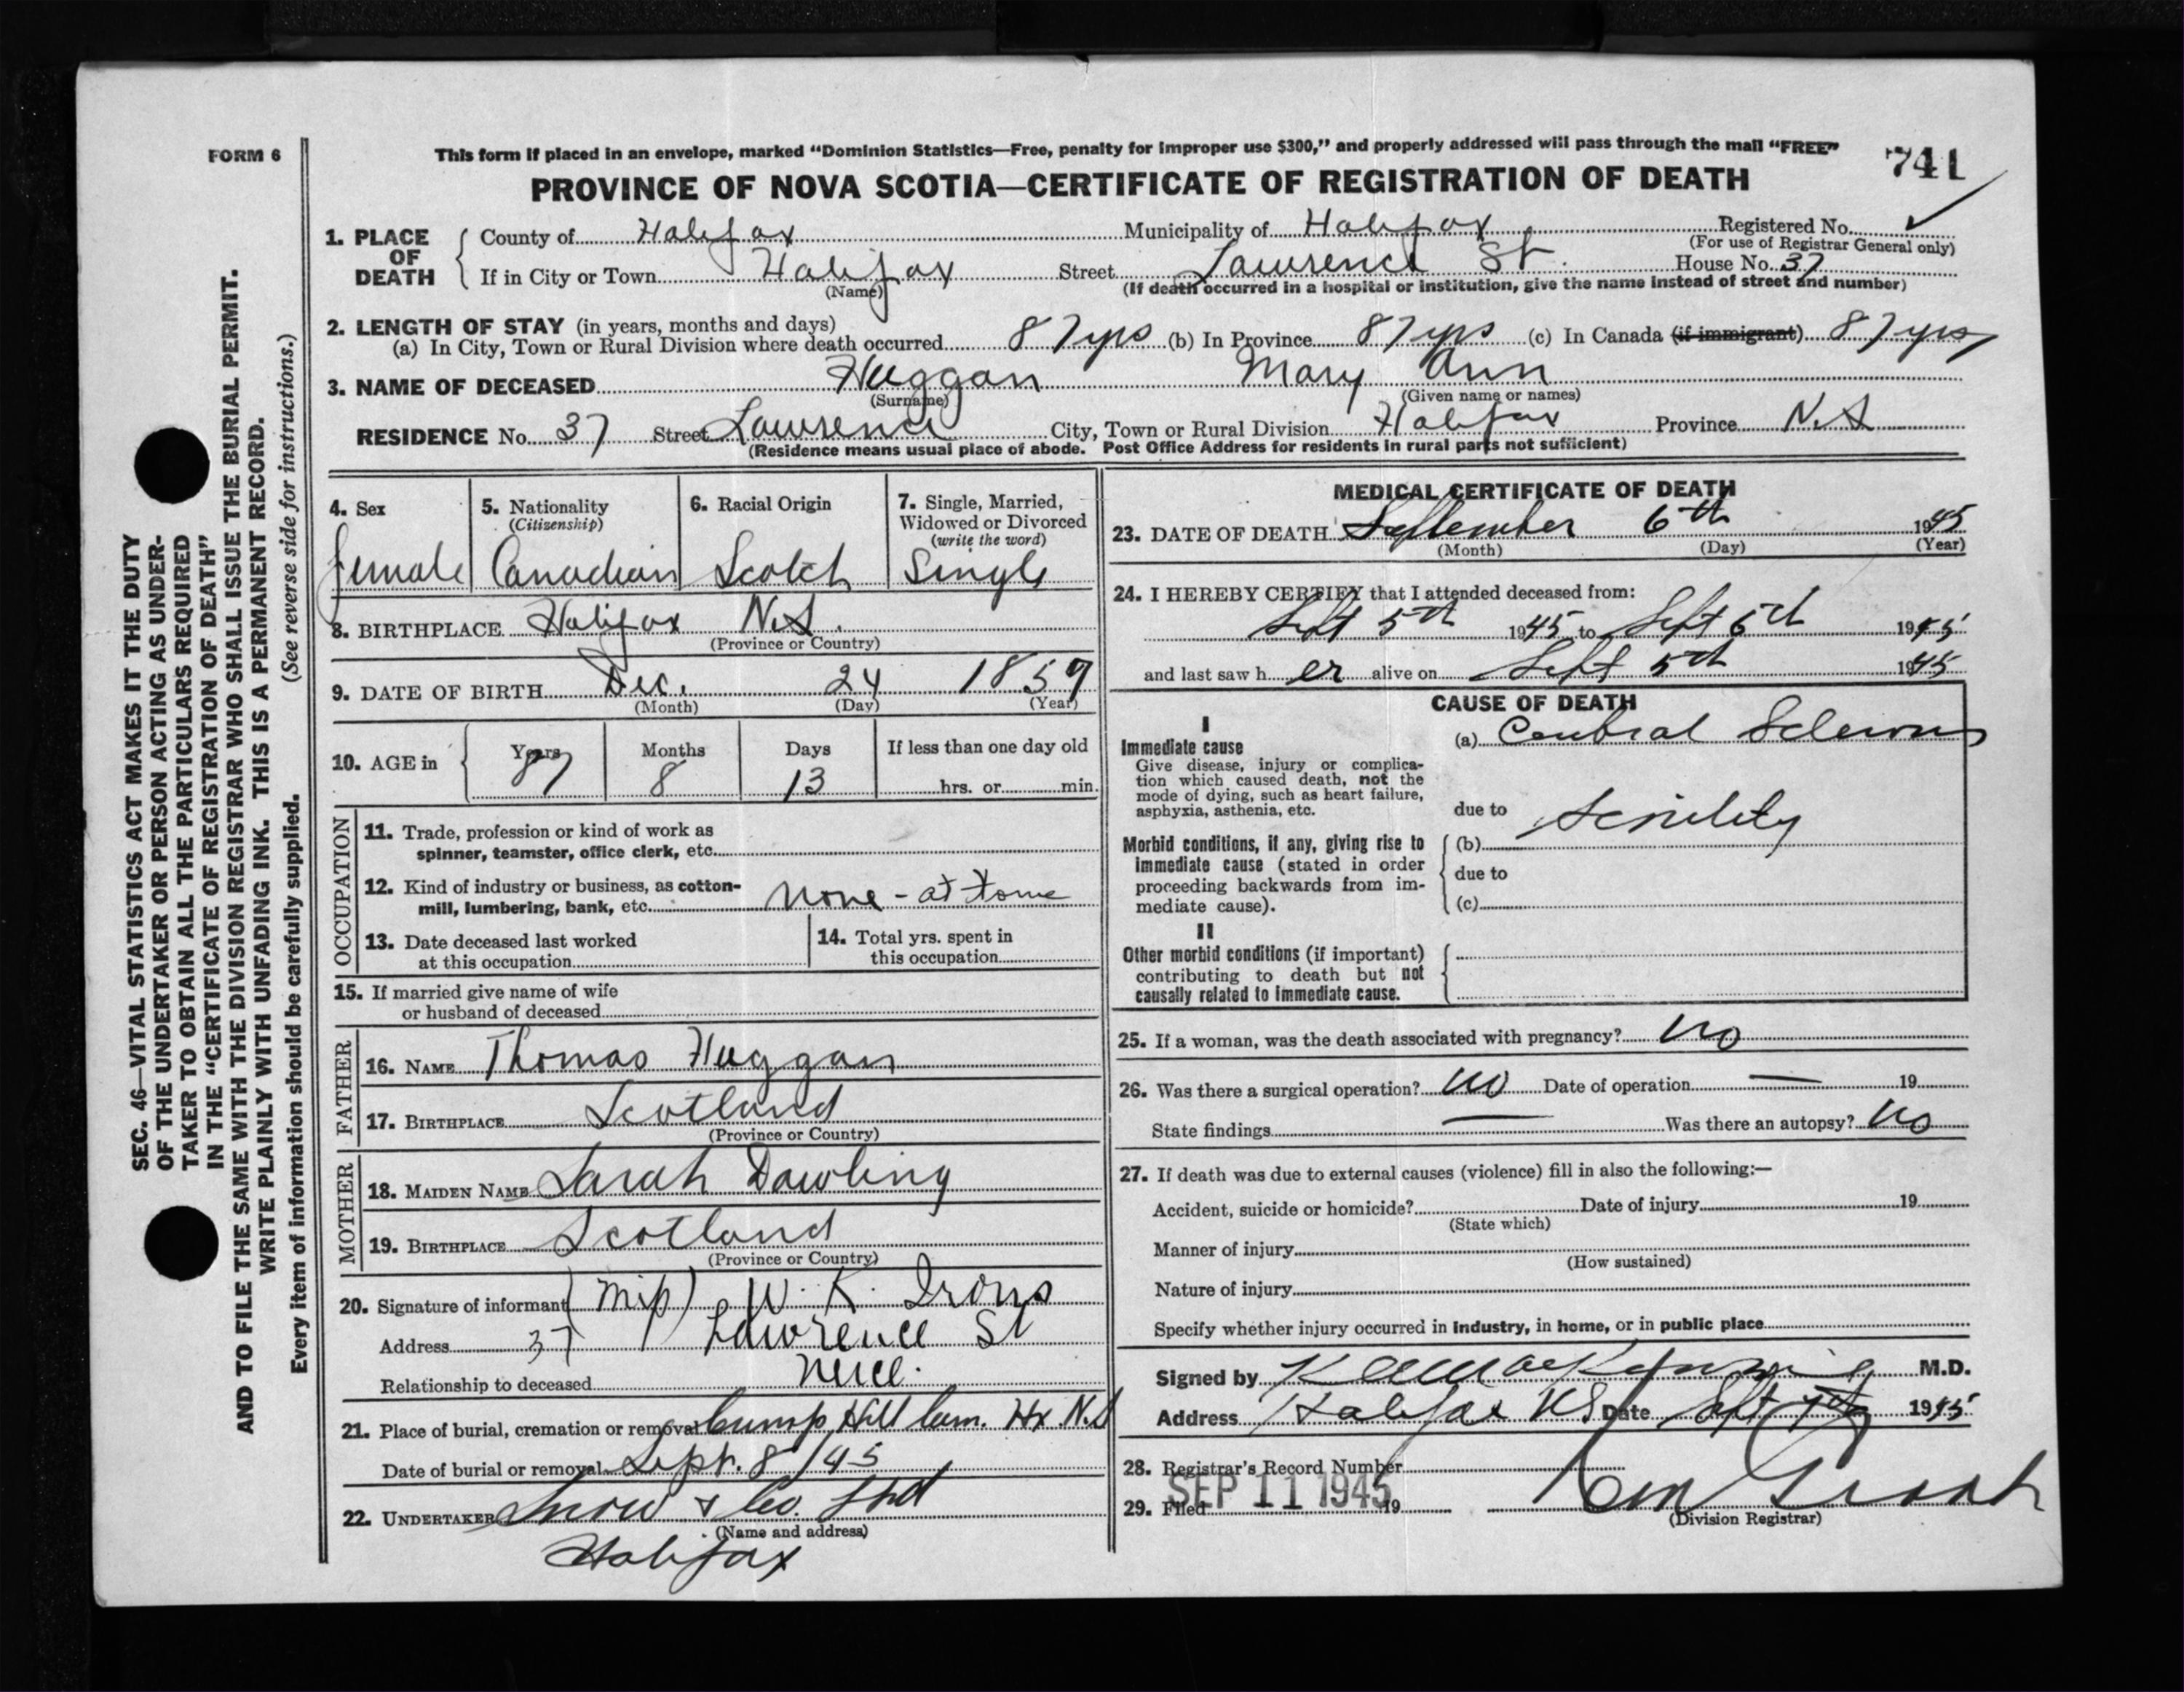 FORM 6
This form if placed in an envelope, marked “Dominion Statistics—Free, penalty for improper use $300,” and properly addressed will pass through the mail “FREE”
741
PROVINCE OF NOVA SCOTIA—CERTIFICATE OF REGISTRATION OF DEATH
1. PLACE OF DEATH
County of Halifax Municipality of Halifax Registered No. ✓
(For use of Registrar General only)
If in City or Town Halifax Street Lawrence St. House No. 37
(Name) (If death occurred in a hospital or institution, give the name instead of street and number)
2. LENGTH OF STAY (in years, months and days)
(a) In City, Town or Rural Division where death occurred 87 yrs (b) In Province 87 yrs (c) In Canada (if immigrant) 87 yrs
3. NAME OF DECEASED Huggan Mary Ann
(Surname) (Given name or names)
RESIDENCE No. 37 Street Lawrence City, Town or Rural Division Halifax Province N.S
(Residence means usual place of abode. Post Office Address for residents in rural parts not sufficient)
4. Sex
Female
5. Nationality
(Citizenship)
Canadian
6. Racial Origin
Scotch
7. Single, Married,
Widowed or Divorced
(write the word)
Single
8. BIRTHPLACE Halifax N.S.
(Province or Country)
9. DATE OF BIRTH Dec. 24 1859
(Month) (Day) (Year)
10. AGE in
Years Months Days If less than one day old
87 8 13 hrs. or min.
OCCUPATION
11. Trade, profession or kind of work as
spinner, teamster, office clerk, etc.
12. Kind of industry or business, as cotton-
mill, lumbering, bank, etc. None - at Home
13. Date deceased last worked
at this occupation
14. Total yrs. spent in
this occupation
15. If married give name of wife
or husband of deceased
FATHER
16. NAME Thomas Huggan
17. BIRTHPLACE Scotland
(Province or Country)
MOTHER
18. MAIDEN NAME Sarah Dowling
19. BIRTHPLACE Scotland
(Province or Country)
20. Signature of informant W. K. Irons
Address 37 Lawrence St
Relationship to deceased niece.
21. Place of burial, cremation or removal Camp Hill Cem. Hx N.S
Date of burial or removal Sept. 8/45
22. UNDERTAKER Snow & Co. Ltd
(Name and address)
Halifax
MEDICAL CERTIFICATE OF DEATH
23. DATE OF DEATH September 6th 1945
(Month) (Day) (Year)
24. I HEREBY CERTIFY that I attended deceased from:
Sept 5th 1945 to Sept 6th 1945
and last saw her alive on Sept 5th 1945
CAUSE OF DEATH
I
Immediate cause
Give disease, injury or complica-
tion which caused death, not the
mode of dying, such as heart failure,
asphyxia, asthenia, etc.
(a) Cerebral Sclerosis
due to
Morbid conditions, if any, giving rise to
immediate cause (stated in order
proceeding backwards from im-
mediate cause).
(b) Senility
due to
(c)
II
Other morbid conditions (if important)
contributing to death but not
causally related to immediate cause.
25. If a woman, was the death associated with pregnancy? No
26. Was there a surgical operation? No Date of operation — 19
State findings — Was there an autopsy? No
27. If death was due to external causes (violence) fill in also the following:—
Accident, suicide or homicide? Date of injury 19
(State which)
Manner of injury
(How sustained)
Nature of injury
Specify whether injury occurred in industry, in home, or in public place
Signed by M.D.
Address Halifax NS Date Sept 7th 1945
28. Registrar's Record Number
29. Filed SEP 11 1945 19
(Division Registrar)
SEC. 46—VITAL STATISTICS ACT MAKES IT THE DUTY
OF THE UNDERTAKER OR PERSON ACTING AS UNDER-
TAKER TO OBTAIN ALL THE PARTICULARS REQUIRED
IN THE “CERTIFICATE OF REGISTRATION OF DEATH”
AND TO FILE THE SAME WITH THE DIVISION REGISTRAR WHO SHALL ISSUE THE BURIAL PERMIT.
WRITE PLAINLY WITH UNFADING INK. THIS IS A PERMANENT RECORD.
Every item of information should be carefully supplied. (See reverse side for instructions.)